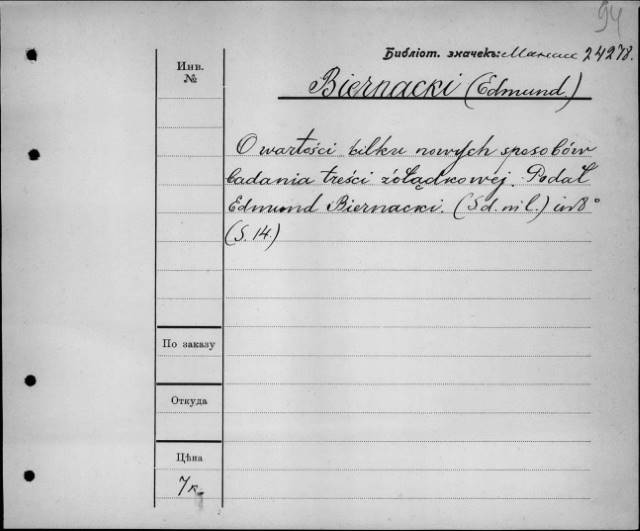 94
Библіот. значекъ: 24278.
Инв.
№
Biernacki (Edmund)
O wartości kilku nowych sposobów
badania treści żołądkowej. Podał
Edmund Biernacki. (S d. ni l.) in 8°
(S. 14.)
По заказу
Откуда
Цѣна
7 к.